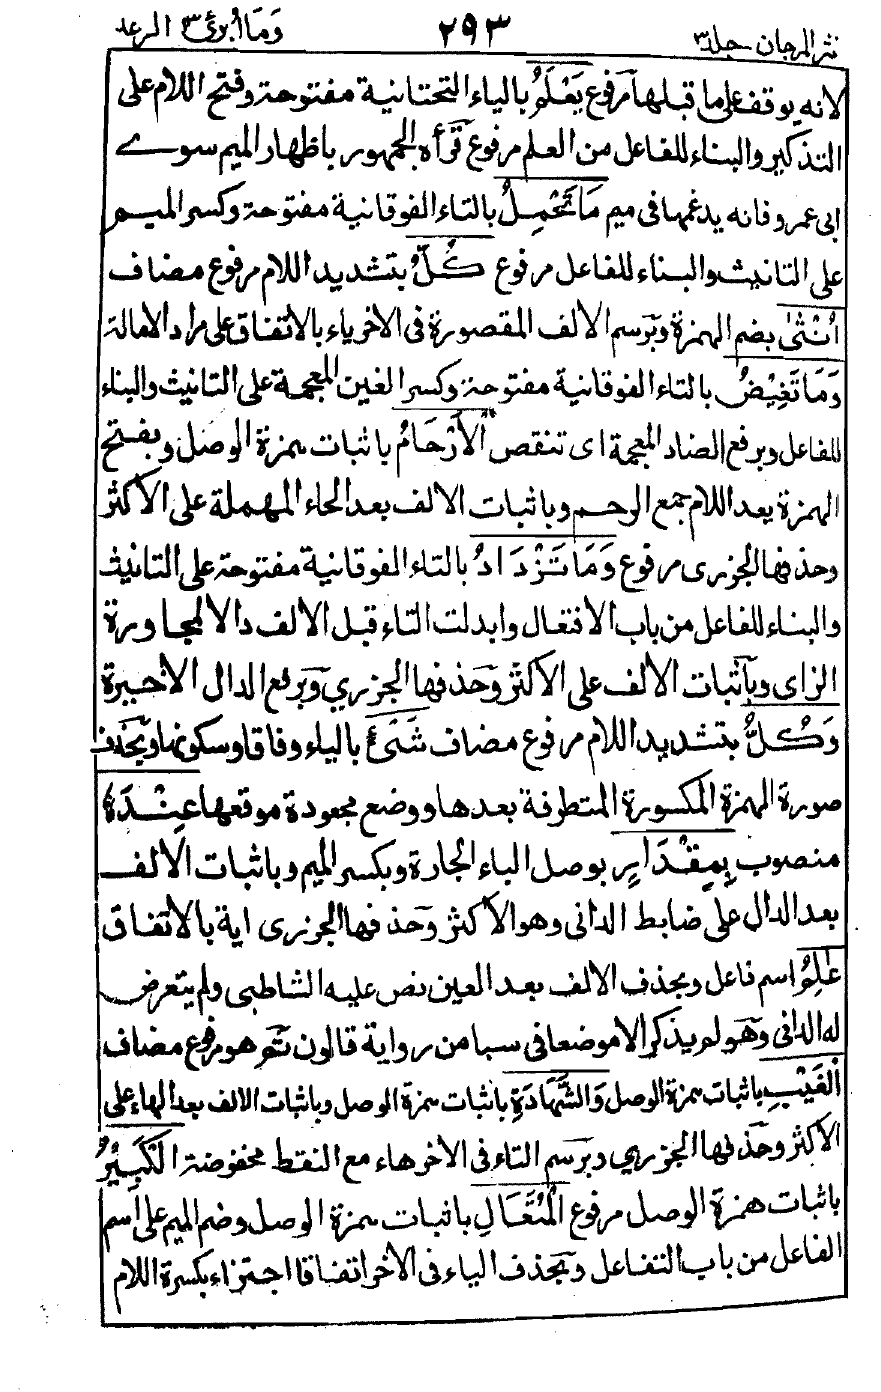 نثر المرجان - جلد ٣ ٢٩٣ وَمَا أُبَرِّئُ ١٣ الرعد
لانه يوقف على ما قبلها مرفوع يَعْلَمُ بالياء التحتانية مفتوحة وفتح اللام على
التذكير والبناء للفاعل من العلم مرفوع قرأه الجمهور باظهار الميم سوے
ابى عمرو فانه يدغمها فى ميم مَا تَحْمِلُ بالتاء الفوقانية مفتوحة وكسر الميم
على التانيث والبناء للفاعل مرفوع كُلُّ بتشديد اللام مرفوع مضاف
اُنْثٰى بضم الهمزة وبرسم الالف المقصورة فى الاخر ياء بالاتفاق على مراد الامالة
وَمَا تَغِيْضُ بالتاء الفوقانية مفتوحة وكسر الغين المعجمة على التانيث والبناء
للفاعل وبرفع الضاد المعجمة اى تنقص الْاَرْحَامُ باثبات همزة الوصل وبفتح
الهمزة بعد اللام جمع الرحم وباثبات الالف بعد الحاء المهملة على الاكثر
وحذفها الجزرى مرفوع وَمَا تَزْدَادُ بالتاء الفوقانية مفتوحة على التانيث
والبناء للفاعل من باب الافتعال وابدلت التاء قبل الالف دالا لمجاورة
الزاى وباثبات الالف على الاكثر وحذفها الجزري وبرفع الدال الاخيرة
وَكُلُّ بتشديد اللام مرفوع مضاف شَىْءٍ بالياء وفاقا وسكونها وبحذف
صورة الهمزة المكسورة المتطرفة بعدها ووضع مجعودة موقعها عِنْدَهٗ
منصوب بِمِقْدَارٍ بوصل الباء الجارة وبكسر الميم وباثبات الالف
بعد الدال على ضابط الدانى وهو الاكثر وحذفها الجزرى اية بالاتفاق
عٰلِمُ اسم فاعل وبحذف الالف بعد العين نص عليه الشاطبى ولم يتعرض
له الدانى وهو لم يذكر الا موضعا فى سبا من رواية قالون ثم هو مرفوع مضاف
الْغَيْبِ باثبات همزة الوصل وَالشَّهَادَةِ باثبات همزة الوصل وباثبات الالف بعد الهاء على
الاكثر وحذفها الجزري وبرسم التاء فى الاخر هاء مع النقط مخفوضة الْكَبِيْرُ
باثبات همزة الوصل مرفوع الْمُتَعَالِ باثبات همزة الوصل وضم الميم على اسم
الفاعل من باب التفاعل وبحذف الياء فى الاخر اتفاقا اجتزاء بكسرة اللام